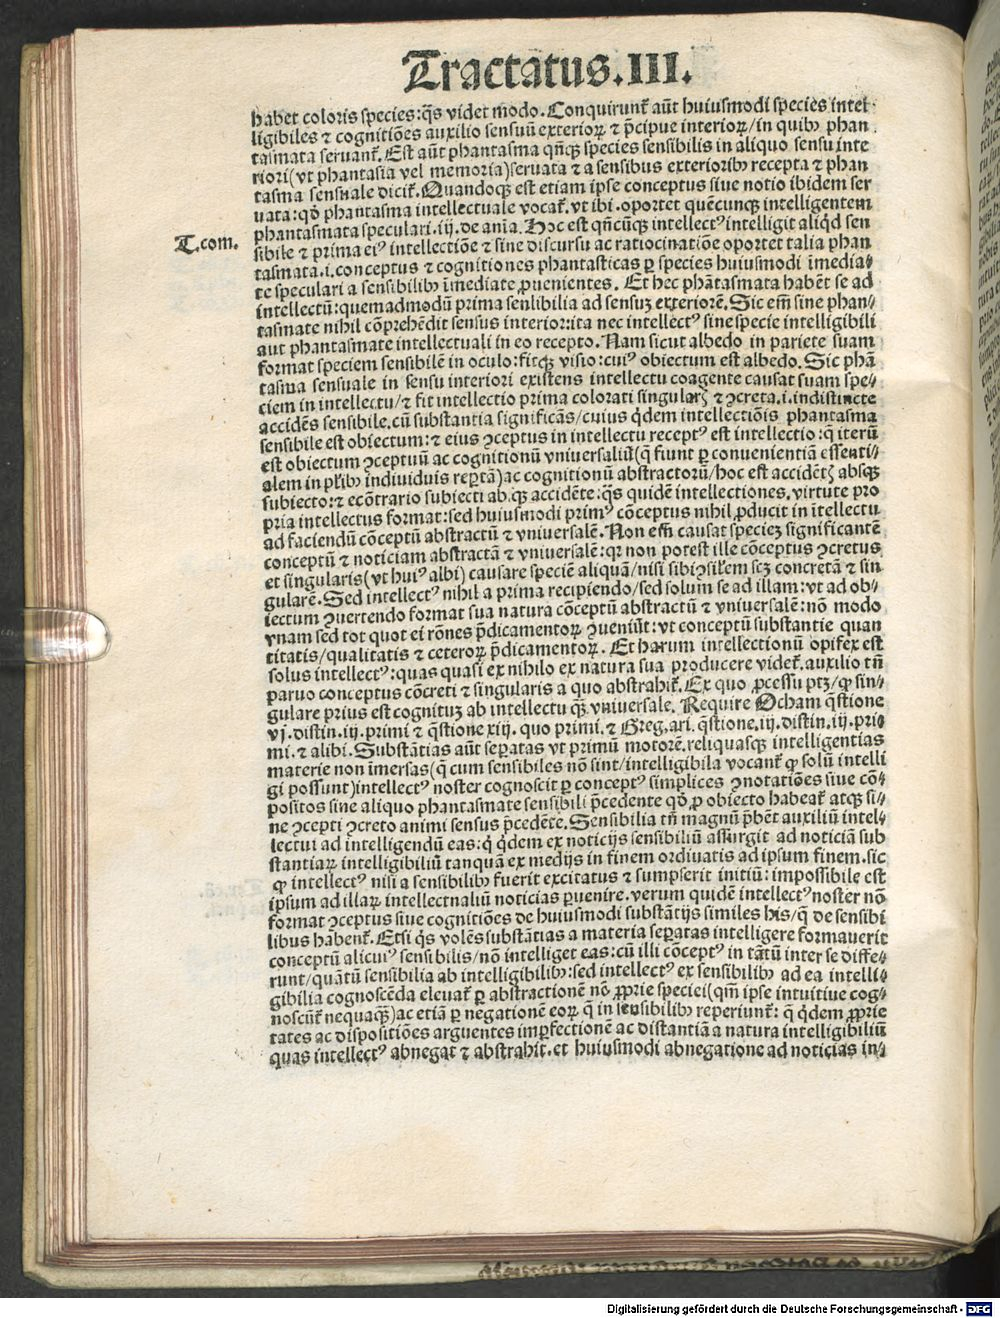 Tractatus.III.
habet coloris species:q̃s videt modo. Conquirunt᷑ aũt huiusmodi species intel-
ligibiles ⁊ cognitiões auxilio sensuũ exterioꝝ ⁊ p̃cipue interioꝝ/in quibꝫ phan
tasmata seruant᷑. Est aũt phantasma qñqꝫ species sensibilis in aliquo sensu inte
riori(vt phantasia vel memoria)seruata ⁊ a sensibus exterioribꝫ recepta ⁊ phan
tasma sensuale dicit᷑. Quandoqꝫ est etiam ipse conceptus siue notio ibidem ser
uata:qđ phantasma intellectuale vocat᷑. vt ibi. oportet quẽcunqꝫ intelligentem
T.com.
phantasmata speculari.iij. de ania. Hoc est qñcũqꝫ intellectꝰ intelligit aliqđ sen
sibile ⁊ prima eiꝰ intellectiõe ⁊ sine discursu ac ratiocinatiõe oportet talia phan
tasmata.i.conceptus ⁊ cognitiones phantasticas ꝑ species huiusmodi ĩmedia-
te speculari a sensibilibꝫ ĩmediate ꝓuenientes. Et hec phãtasmata habẽt se ad
intellectũ:quemadmodũ prima sensibilia ad sensuꝫ exteriorẽ. Sic em̃ sine phan-
tasmate nihil cõprehẽdit sensus interior:ita nec intellectꝰ sine specie intelligibili
aut phantasmate intellectuali in eo recepto. Nam sicut albedo in pariete suam
format speciem sensibilẽ in oculo:fitqꝫ visio:cuiꝰ obiectum est albedo. Sic phã
tasma sensuale in sensu interiori existens intellectu coagente causat suam spe-
ciem in intellectu/⁊ fit intellectio prima colorati singularꝭ ⁊ ꝯcreta.i.indistincte
accidẽs sensibile.cũ substantia significãs/cuius q̃dem intellectiõis phantasma
sensibile est obiectum:⁊ eius ꝯceptus in intellectu receptꝰ est intellectio:q̃ iterũ
est obiectum ꝯceptuũ ac cognitionũ vniversaliũ(q̃ fiunt ꝑ conuenientiã essenti-
alem in pl̃ibꝫ indiuiduis reꝑtã)ac cognitionũ abstractorũ/hoc est accidẽtꝭ absqꝫ
subiecto:⁊ ecõtrario subiecti absqꝫ accidẽte:q̃s quidẽ intellectiones. virtute pro
pria intellectus format:sed huiusmodi primꝰ cõceptus nihil ꝓducit in ĩtellectu
ad faciendũ cõceptũ abstractũ ⁊ vniuersalẽ. Non em̃ causat specieꝫ significantẽ
conceptũ ⁊ noticiam abstractã ⁊ vniuersalẽ:qr non potest ille cõceptus ꝯcretus
et singularis(vt huiꝰ albi) causare speciẽ aliquã/nisi sibi ꝯsil̃em scꝫ concretã ⁊ sin
gularẽ. Sed intellectꝰ nihil a prima recipiendo/sed solum se ad illam:vt ad ob-
iectum ꝯuertendo format sua natura cõceptũ abstractũ ⁊ vniuersalẽ:nõ modo
vnam sed tot quot ei rõnes p̃dicamentoꝝ ꝯueniũt:vt conceptũ substantie quan
titatis/qualitatis ⁊ ceteroꝝ p̃dicamentoꝝ. Et harum intellectionũ opifex est
solus intellectꝰ:quas quasi ex nihilo ex natura sua producere videt᷑. auxilio tñ
paruo conceptus cõcreti ⁊ singularis a quo abstrahit᷑. Ex quo ꝓcessu ptꝫ/ꝙ sin-
gulare prius est cognituꝫ ab intellectu qꝫ vniuersale. Require Ocham q̃stione
vj.distin.iij.primi ⁊ q̃stione xiij. quo primi.⁊ Greg.ari.q̃stione.iij.distin.iij.pri-
mi.⁊ alibi. Substãtias aũt seꝑatas vt primũ motorẽ.reliquasqꝫ intelligentias
materie non ĩmersas(q̃ cum sensibiles nõ sint/intelligibila vocant᷑ ꝙ solũ intelli
gi possunt)intellectꝰ noster cognoscit ꝑ conceptꝰ simplices ꝯnotatiões siue cõ-
positos sine aliquo phantasmate sensibili p̃cedente qđ ꝓ obiecto habeat᷑ atqꝫ si-
ne ꝯcepti ꝯcreto animi sensus p̃cedẽte. Sensibilia tñ magnũ p̃bẽt auxiliũ intel-
lectui ad intelligendũ eas:q̃ q̃dem ex noticijs sensibiliũ assurgit ad noticiã sub
stantiaꝝ intelligibiliũ tanquã ex medijs in finem ordinatis ad ipsum finem.sic
ꝙ intellectꝰ nisi a sensibilibꝫ fuerit excitatus ⁊ sumpserit initiũ:impossibile est
ipsum ad illaꝝ intellectualiũ noticias ꝑuenire. verum quidẽ intellectꝰ noster nõ
format ꝯceptus siue cognitiões de huiusmodi substãtijs similes his/q̃ de sensibi
libus habent᷑. Etsi q̃s volẽs substãtias a materia seꝑatas intelligere formauerit
conceptũ alicuiꝰ sensibilis/nõ intelliget eas:cũ illi cõceptꝰ in tãtũ inter se diffe-
runt/quãtũ sensibilia ab intelligibilibꝫ:sed intellectꝰ ex sensibilibꝫ ad ea intelli-
gibilia cognoscẽda eleuat᷑ ꝑ abstractionẽ nõ ꝓprie speciei(qm̃ ipse intuitiue cog-
noscũt᷑ nequaqꝫ)ac etiã ꝑ negationẽ eoꝝ q̃ in sensibilibꝫ reperiunt᷑: q̃ q̃dem ꝓprie
tates ac dispositiões arguentes imꝑfectionẽ ac distantiã a natura intelligibiliũ
quas intellectꝰ abnegat ⁊ abstrahit.et huiusmodi abnegatione ad noticias in-
Digitalisierung gefördert durch die Deutsche Forschungsgemeinschaft - DFG